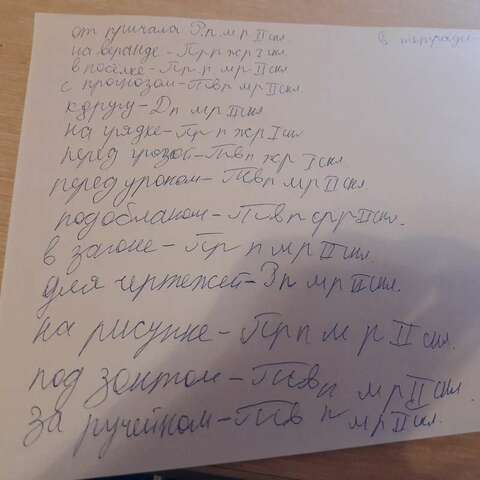 от причала Р п м р II скл.
в тетради-
на веранде - Пр п ж р I скл.
в посёлке - Пр. п м р II скл.
с прогнозом - Тв п м р II скл.
к другу - Д п м р II скл
на грядке - Пр п ж р I скл
перед грозой - Тв п ж р I скл.
перед уроком - Тв п м р II скл.
под облаком - Тв п ср р II скл.
в загоне - Пр п м р II скл.
для чертежей - Р п м р II скл.
на рисунке - Пр п м р II скл.
под зонтом - Тв п м р II скл.
за ручейком - Тв п м р II скл.